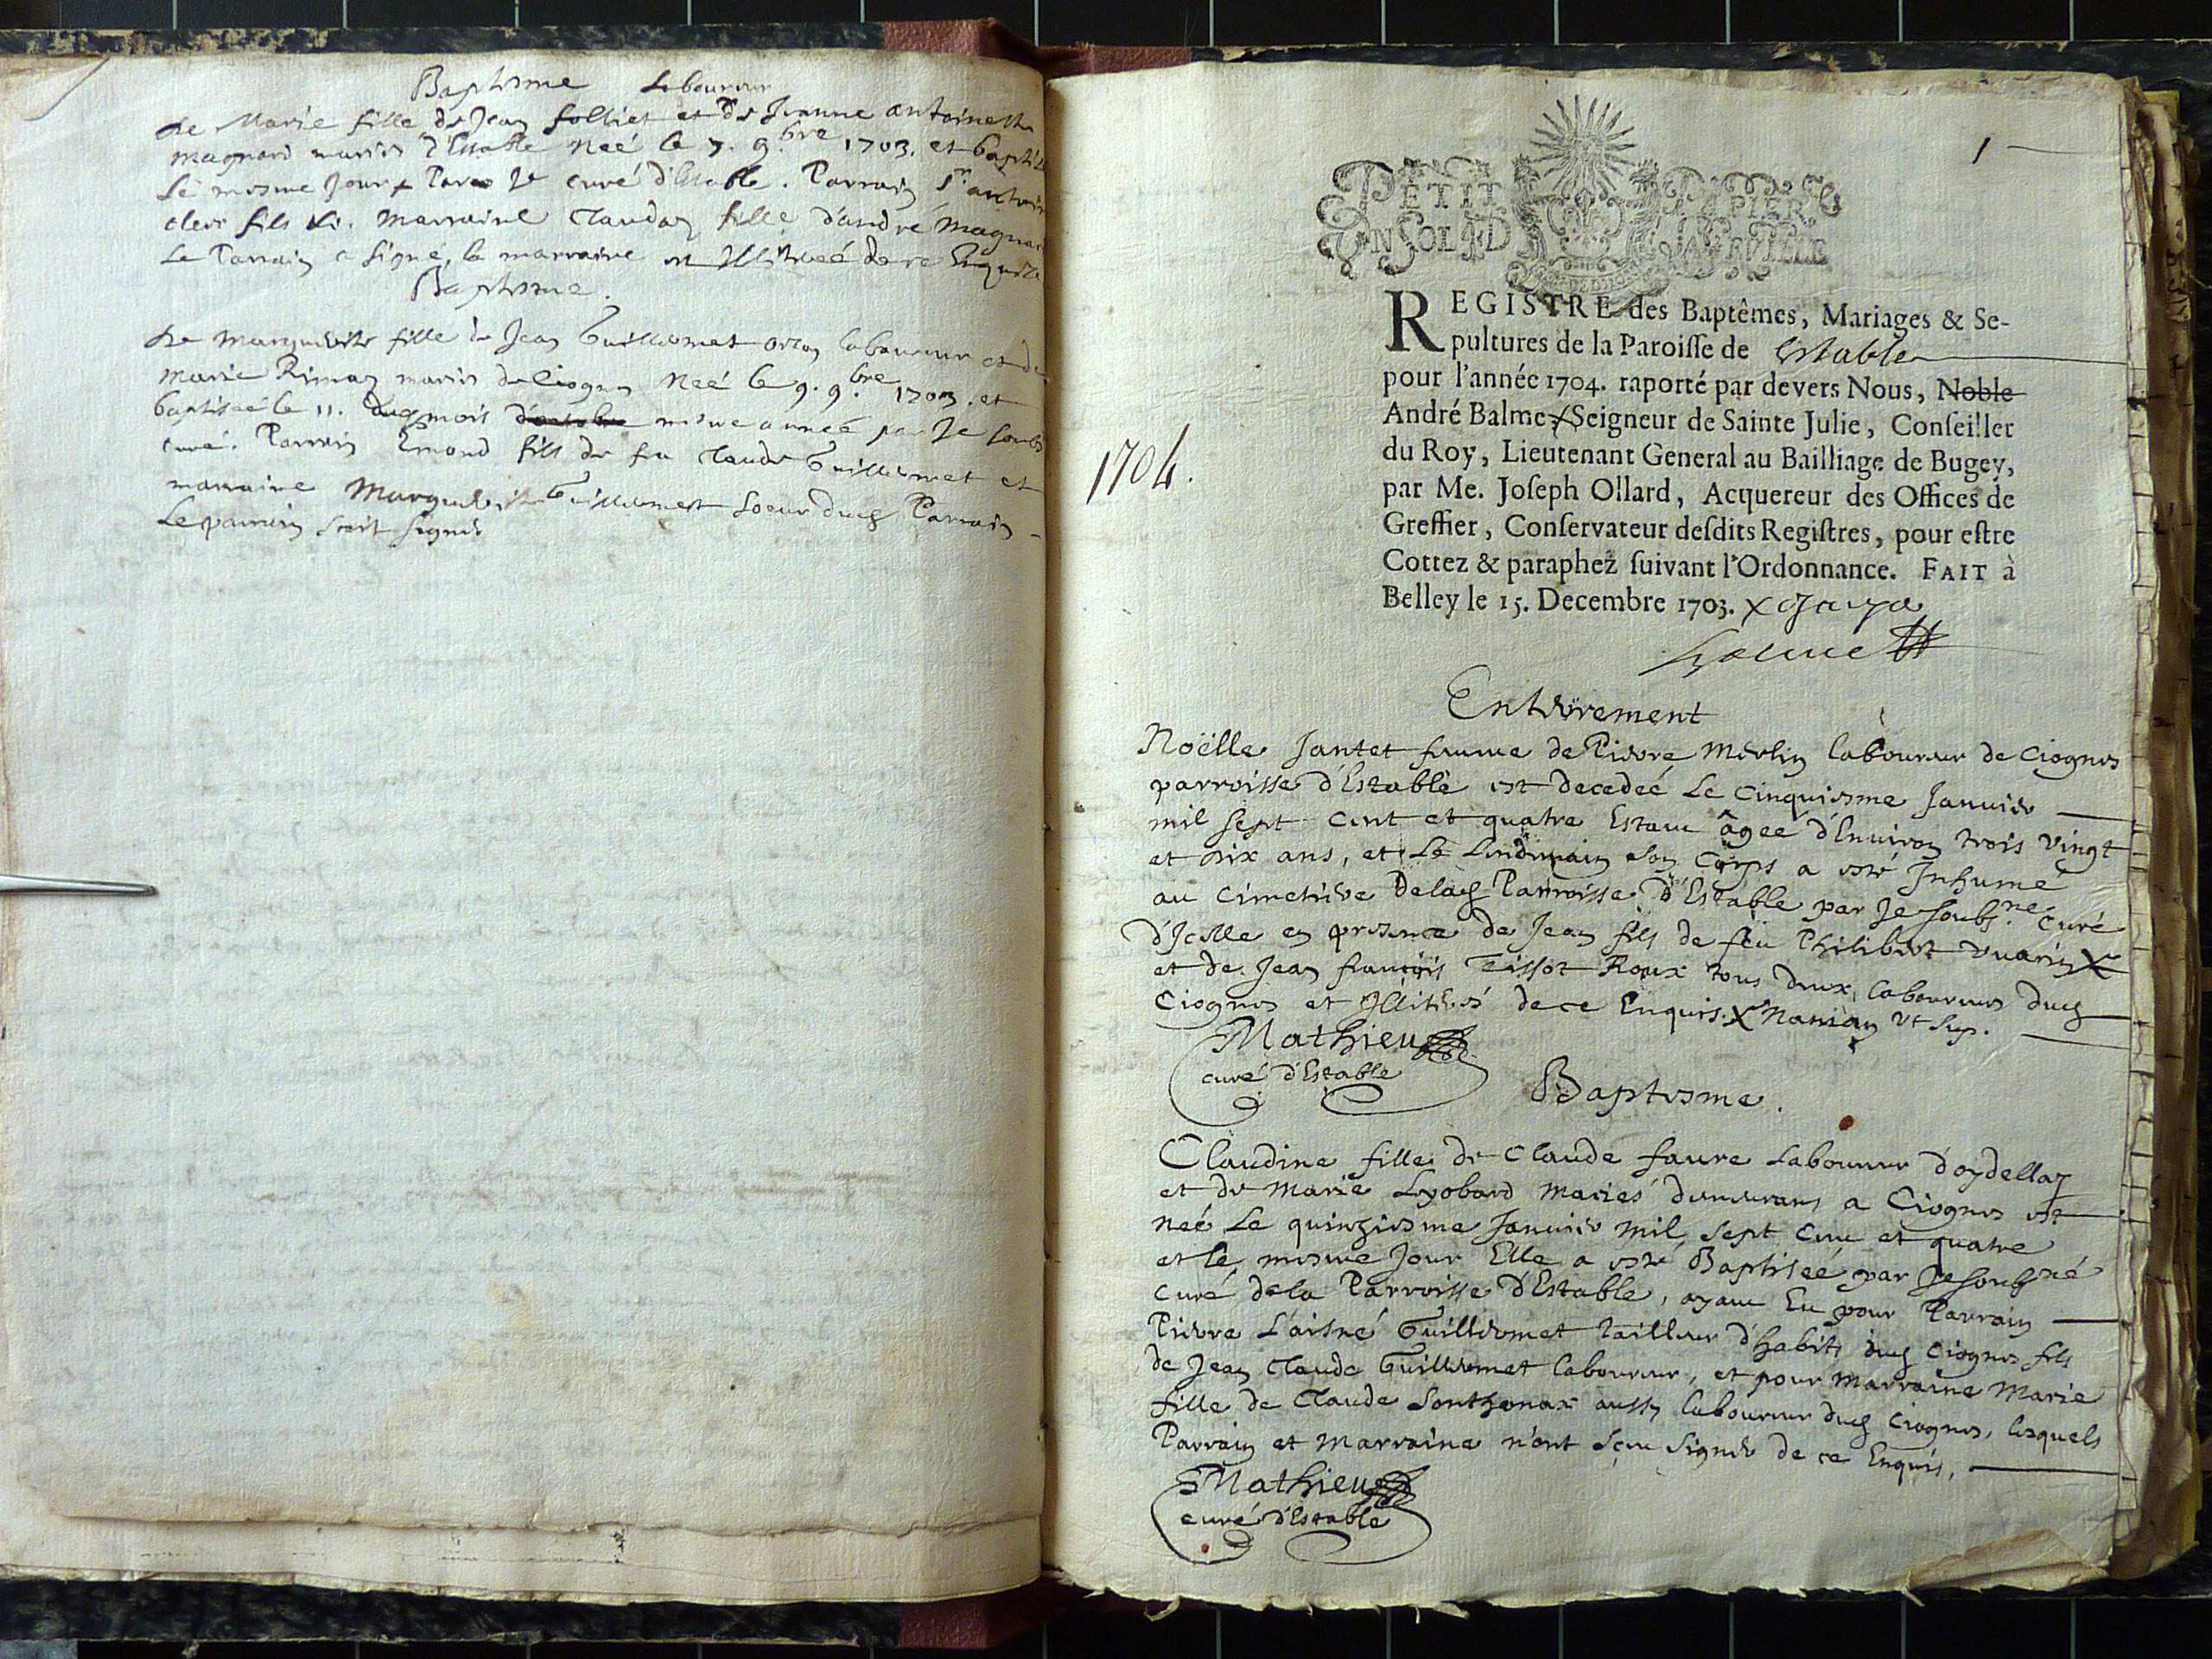 Baptesme Laboureur
de Marie fille de Jean folliet et de Jeanne antoinette
magnard mariés d'Estable Neé le 7. 9.bre 1703. et baptisé
Le mesme Jour Par Je curé d'Estable. Parrain Sr
clerc fils marraine Claudaz fille d'andré magnar
Le Parrain a signé, la marraine Illitereé de ce Enquise
Baptesme.
de Marguerite fille de Jean Guillermet laboureur et de
Marie mariés de Ciognes Neé le 9. 9.bre 1703. et
baptiseé le 11. dud mois d'octobre mesme anneé par Je soubs
curé. Parrain Emond fils de feu Claude Guillermet et
marraine Marguerite Guillermet soeur dud Parrain
Le parrain scait signer
1
PETIT PAPIER
UN SOL LA FEUILLE
REGISTRE des Baptêmes, Mariages & Se-
pultures de la Paroisse de Estable
pour l'année 1704. raporté par devers Nous, Noble
André Balme Seigneur de Sainte Julie, Conseiller
du Roy, Lieutenant General au Bailliage de Bugey,
par Me. Joseph Ollard, Acquereur des Offices de
Greffier, Conservateur desdits Registres, pour estre
Cottez & paraphez suivant l'Ordonnance. FAIT à
Belley le 15. Decembre 1703.
1704.
Enterrement
Noëlle Jantet femme de Pierre Merlin laboureur de Ciognes
parroisse d'Estable est decedeé Le cinquiesme Januier
mil sept cent et quatre Estant âgeé d'Enuiron trois vingt
et dix ans, et Le Lendemain son Corps a esté Inhumé
au cimetiere delad Parroisse d'Estable par Je soubs.né Curé
d'Icelle en presence de Jean fils de feu Philibert vuarin X
et de Jean françois Tissot Roux tous deux laboureurs dud
Ciognes et Illiterés de ce Enquis. X Nanian Vt Sup.
Mathieu
curé d'Estable
Baptesme.
Claudine fille de Claude faure Laboureur d'oydellaz
et de Marie Lyobard mariés demeurans a Ciognes est
neé Le quinziesme Januier mil sept cent et quatre
et le mesme Jour Elle a esté Baptiseé par Je soubsné
Curé dela Parroisse d'Estable, ayant Eu pour Parrain
Pierre L'aisné Guillermet tailleur d'habits dud Ciognes fils
de Jean Claude Guillermet laboureur, et pour marraine Marie
fille de Claude Sonthonax aussy laboureur dud Ciognes, lesquels
Parrain et Marraine n'ont sceu signer de ce Enquis.
Mathieu
curé d'Estable